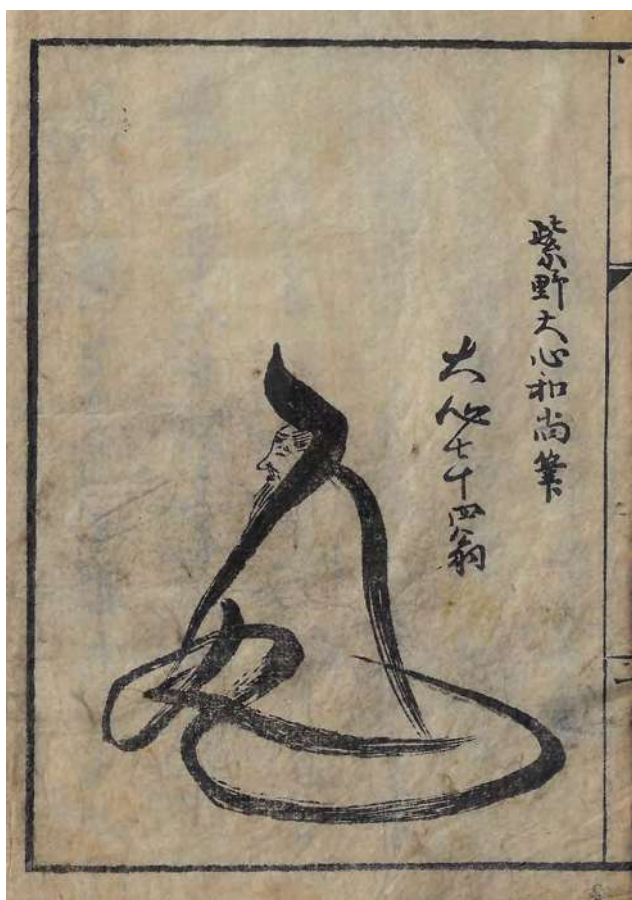 紫野大心和尚筆
大心七十四翁
人丸